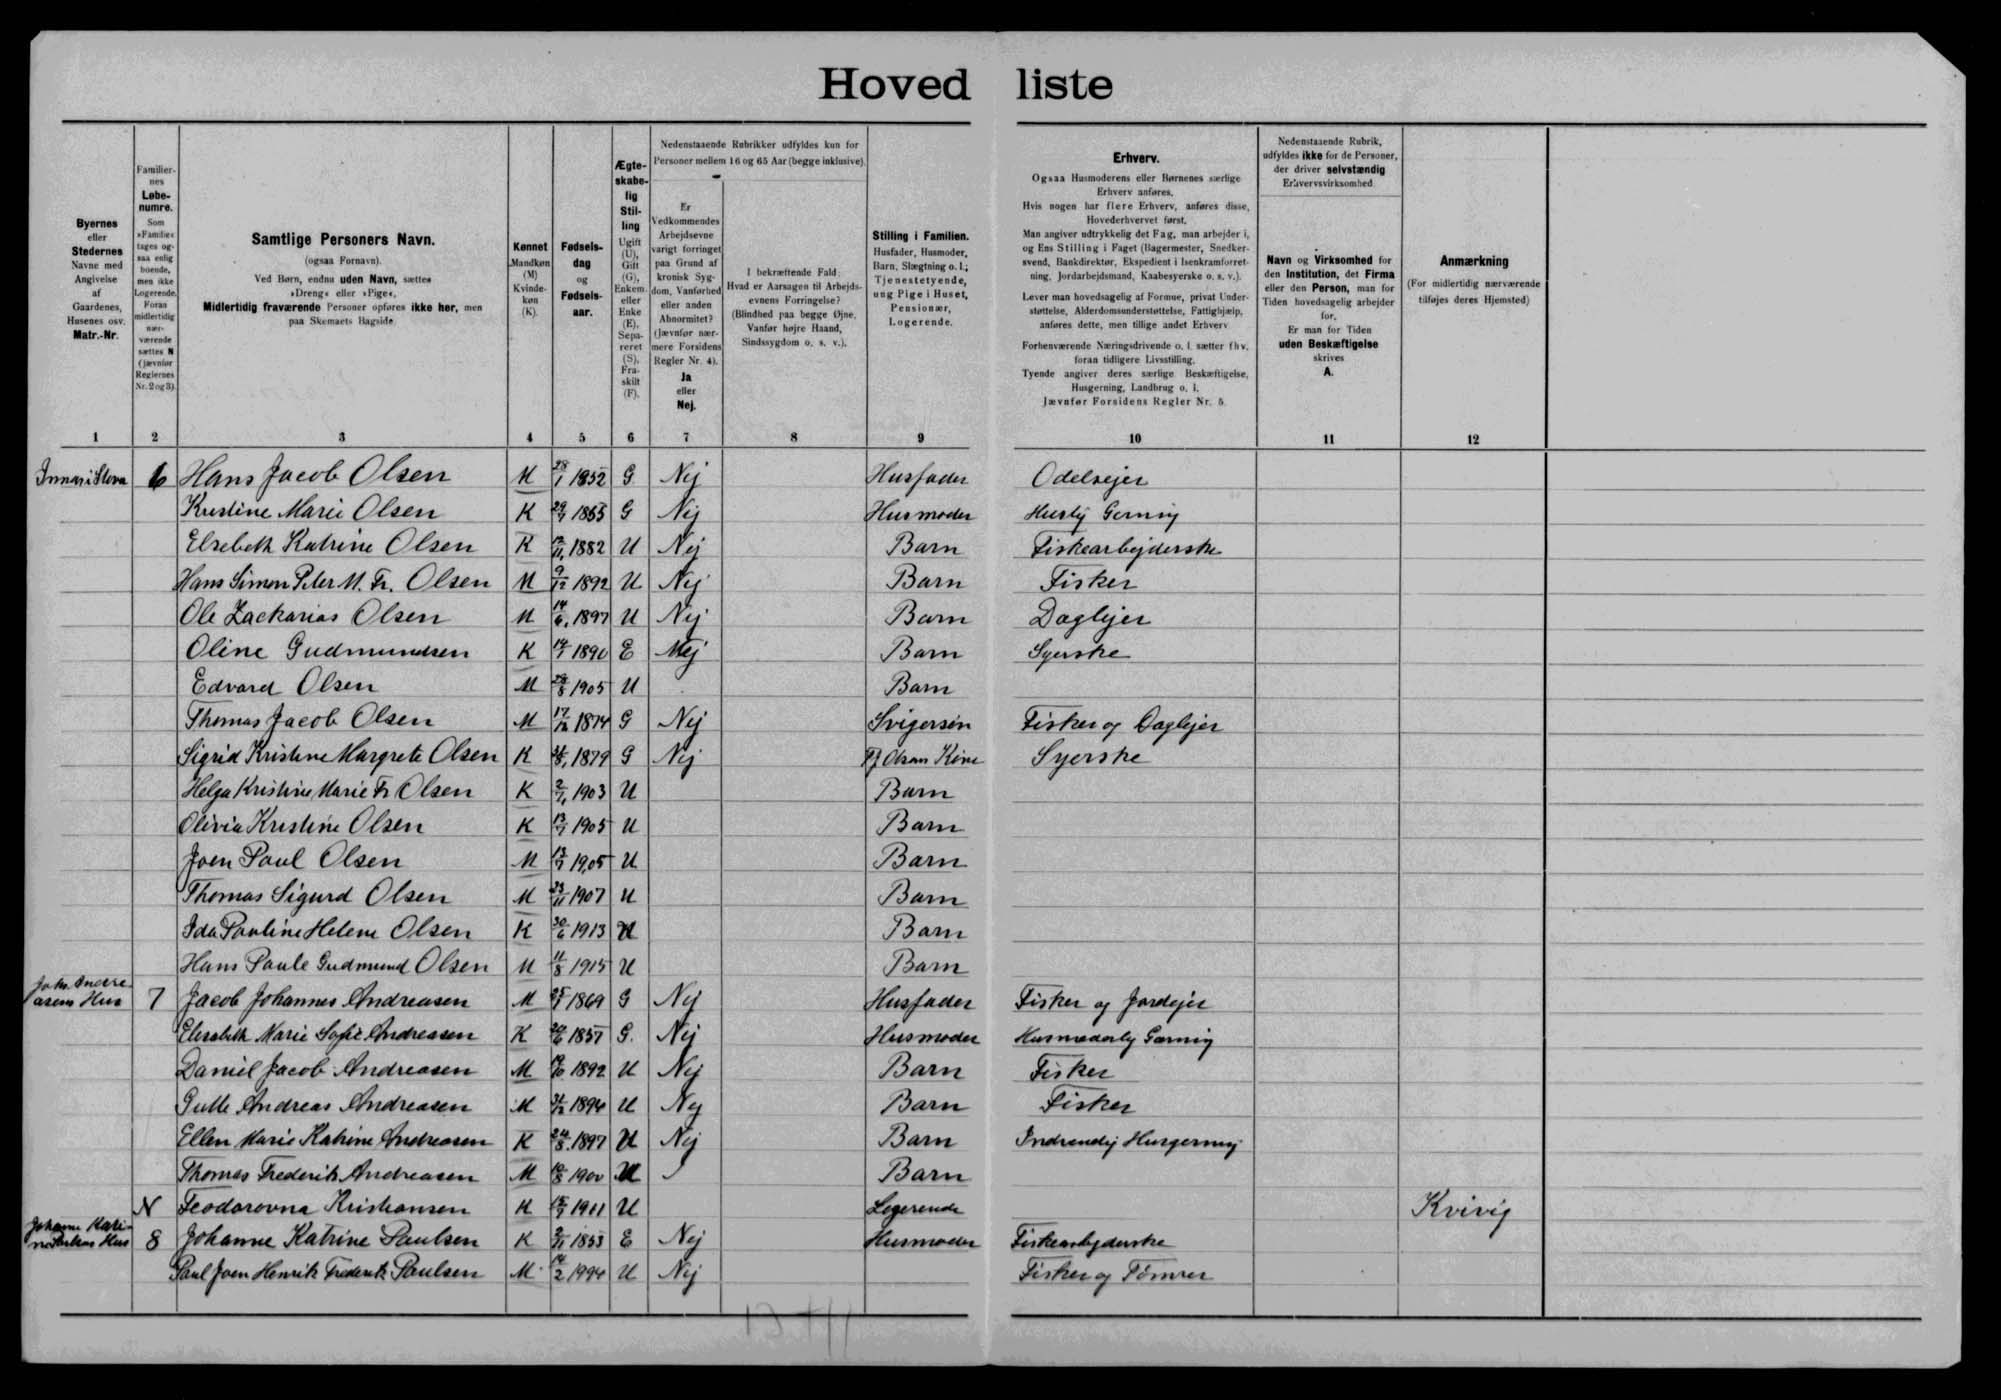 Hoved liste
Byernes
eller
Stedernes
Navne med
Angivelse
af
Gaardenes,
Husenes osv.
Matr.-Nr.
Familier-
nes
Løbe-
numre.
Som
»Familie«
tages og-
saa enlig
boende,
men ikke
Logerende.
Foran
midlertidig
nær-
værende
sættes N
(jævnfør
Reglernes
Nr. 2 og 3).
Samtlige Personers Navn.
(ogsaa Fornavn).
Ved Børn, endnu uden Navn, sættes
»Dreng« eller »Pige«.
Midlertidig fraværende Personer opføres ikke her, men
paa Skemaets Bagside.
Kønnet
Mandkøn
(M)
Kvinde-
køn
(K).
Fødsels-
dag
og
Fødsels-
aar.
Ægte-
skabe-
lig
Stil-
ling
Ugift
(U),
Gift
(G),
Enkem.
eller
Enke
(E),
Sepa-
reret
(S),
Fra-
skilt
(F).
Nedenstaaende Rubrikker udfyldes kun for
Personer mellem 16 og 65 Aar (begge inklusive).
Er
Vedkommendes
Arbejdsevne
varigt forringet
paa Grund af
kronisk Syg-
dom, Vanførhed
eller anden
Abnormitet?
(Jævnfør nær-
mere Forsidens
Regler Nr. 4).
Ja
eller
Nej.
I bekræftende Fald:
Hvad er Aarsagen til Arbejds-
evnens Forringelse?
(Blindhed paa begge Øjne,
Vanfør højre Haand,
Sindssygdom o. s. v.).
Stilling i Familien.
Husfader, Husmoder,
Barn, Slægtning o. l.;
Tjenestetyende,
ung Pige i Huset,
Pensionær,
Logerende.
Erhverv.
Ogsaa Husmoderens eller Børnenes særlige
Erhverv anføres.
Hvis nogen har flere Erhverv, anføres disse,
Hovederhvervet først.
Man angiver udtrykkelig det Fag, man arbejder i,
og Ens Stilling i Faget (Bagermester, Snedker-
svend, Bankdirektør, Ekspedient i Isenkramforret-
ning, Jordarbejdsmand, Kaabesyerske o. s. v.).
Lever man hovedsagelig af Formue, privat Under-
støttelse, Alderdomsunderstøttelse, Fattighjælp,
anføres dette, men tillige andet Erhverv
Forhenværende Næringsdrivende o. l. sætter fhv.
foran tidligere Livsstilling.
Tyende angiver deres særlige Beskæftigelse,
Husgerning, Landbrug o. l.
Jævnfør Forsidens Regler Nr. 5.
Nedenstaaende Rubrik,
udfyldes ikke for de Personer,
der driver selvstændig
Erhvervsvirksomhed
Navn og Virksomhed for
den Institution, det Firma
eller den Person, man for
Tiden hovedsagelig arbejder
for.
Er man for Tiden
uden Beskæftigelse
skrives
A.
Anmærkning
(For midlertidig nærværende
tilføjes deres Hjemsted)
1 2 3 4 5 6 7 8 9 10 11 12
Innari Stova 6 Hans Jacob Olsen M 28/1 1852 G Nej Husfader Odelsejer
Kristine Marie Olsen K 1853 G Nej Husmoder Huslig Gerning
Elsebeth Katrine Olsen K 1882 U Nej Barn Fiskearbejderske
Hans Simon Peter M. Fr. Olsen M 9/12 1892 U Nej Barn Fisker
Ole Zackarias Olsen M 14/6 1897 U Nej Barn Daglejer
Oline Gudmundsen K 1890 E Nej Barn Syerske
Edvard Olsen M 1905 U Barn
Thomas Jacob Olsen M 17/12 1874 G Nej Svigersøn Fisker og Daglejer
Sigrid Kristine Margrete Olsen K 1879 G Nej Tj Olsens Kone Syerske
Helga Kristine Marie Fr Olsen K 2/7 1903 U Barn
Olivia Kristine Olsen K 13/7 1905 U Barn
Joen Paul Olsen M 13/7 1905 U Barn
Thomas Sigurd Olsen M 23/11 1907 U Barn
Ida Pauline Helene Olsen K 30/6 1913 U Barn
Hans Paule Gudmund Olsen M 11/8 1915 U Barn
Johs. Andre-
asens Hus 7 Jacob Johannes Andreasen M 25/1 1869 G Nej Husfader Fisker og Jordejer
Elisabeth Marie Sofie Andreasen K 1857 G. Nej Husmoder Husmoderlig Gerning
Daniel Jacob Andreasen M 1892 U Nej Barn Fisker
Gutte Andreas Andreasen M 31/12 1894 U Nej Barn Fisker
Ellen Marie Katrine Andreasen K 24/8 1897 U Nej Barn Indvendig Husgerning
Thomas Frederik Andreasen M 1900 U Barn
N Teodorovna Kristiansen K 1911 U Logerende Kvivig
Johanne Katri-
ne Paulsens Hus 8 Johanne Katrine Paulsen K 1853 E Nej Husmoder Fiskearbejderske
Paul Joen Henrik Frederik Paulsen M 14/2 1994 U Nej Fisker og Tømrer